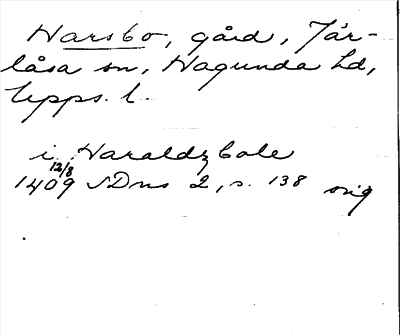 Harsbo, gård, Jär-
låsa sn, Hagunda hd,
Upps. l.
i Haraldzbole
12/8
1409 SDns 2, s. 138 orig